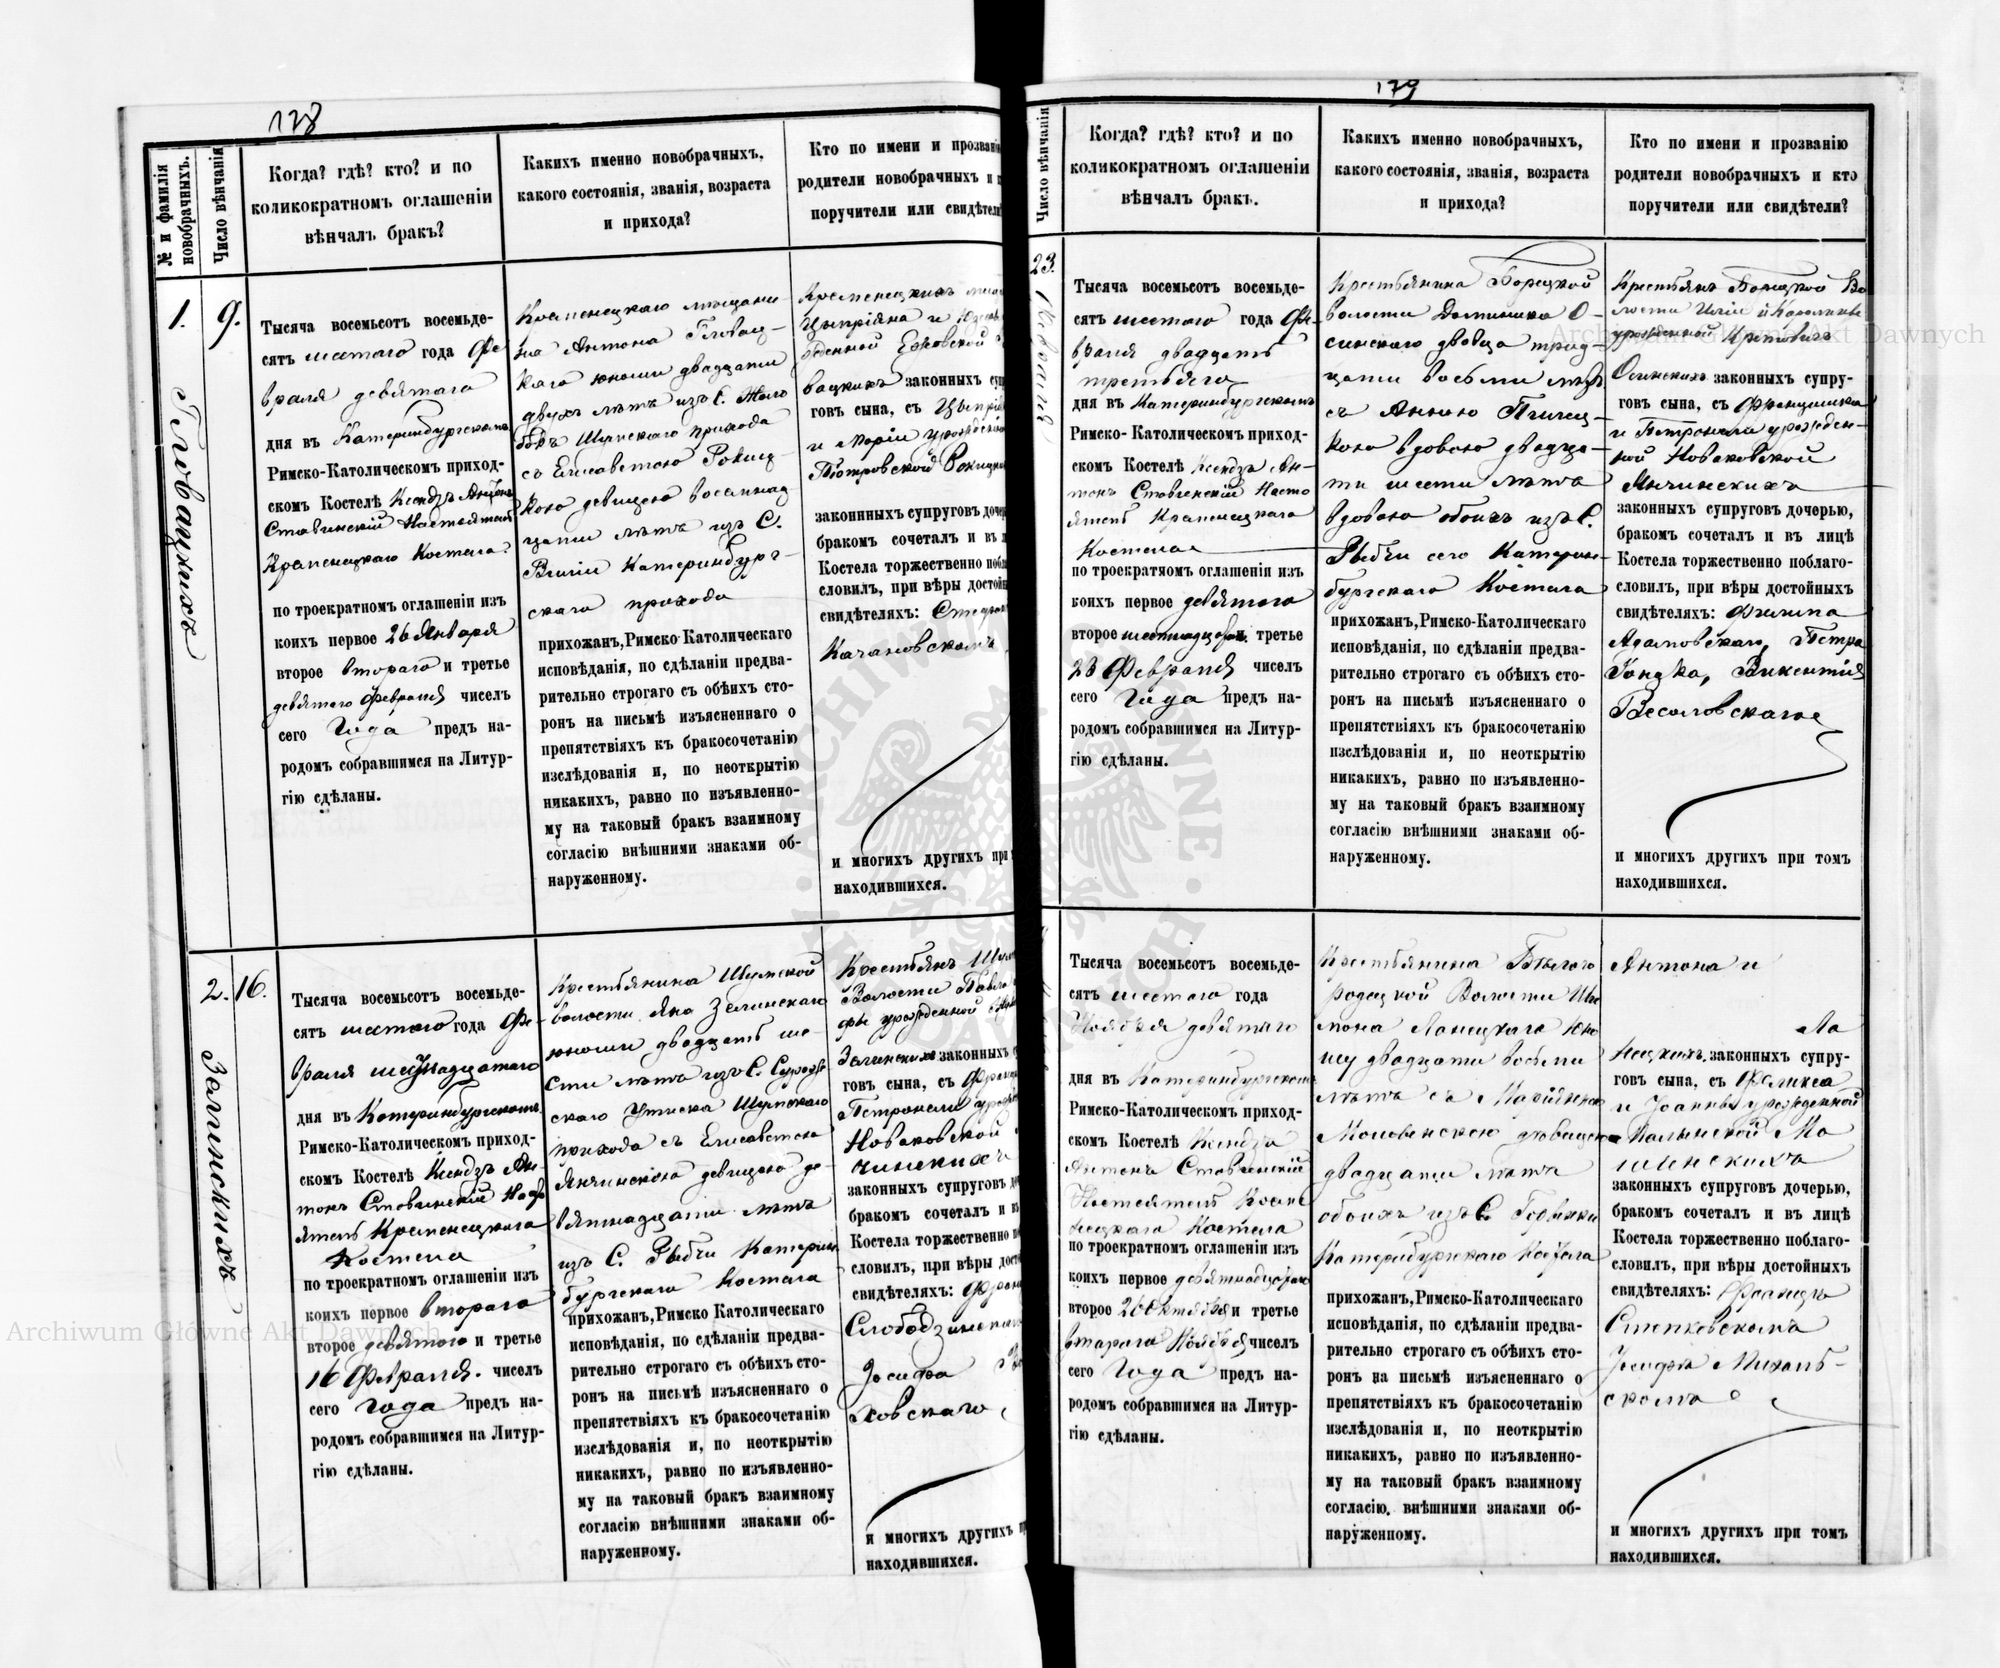 178
№ и фамилія новобрачныхъ.
Число вѣнчанія
Когда? гдѣ? кто? и по
коликократномъ оглашеніи
вѣнчалъ бракъ?
Какихъ именно новобрачныхъ,
какого состоянія, званія, возраста
и прихода?
Кто по имени и прозванію
родители новобрачныхъ и
поручители или свидѣтели
1.
9.
Гловацкихъ
Тысяча восемьсот восемьде-
сятъ шестого года Фе-
враля девятаго
дня въ Катеринбургскомъ
Римско-Католическомъ приход-
скомъ Костелѣ Ксендзъ Антонъ
Ставинскій Настоятель
Кременецкаго Костела
по троекратномъ оглашеніи изъ
коихъ первое 26 Января
второе втораго и третье
девятаго Февраля чиселъ
сего Года предъ на-
родомъ собравшимся на Литур-
гію сдѣланы.
Кременецкаго мѣщани-
на Антона Гловац-
каго юношу двадцати
двухъ лѣтъ изъ С.
Шумскаго прихода
съ Елисаветою Рокиц-
кою девицею восемнад
цати лѣтъ изъ С.
Катеринбург-
скаго прихода
прихожан, Римско-Католическаго
исповѣданія, по сдѣланіи предва-
рительно строгаго съ обѣихъ сто-
ронъ на письмѣ изъясненнаго о
препятствіяхъ къ бракосочетанію
изслѣдованія и, по неоткрытію
никакихъ, равно по изъявленно-
му на таковый бракъ взаимному
согласію внѣшними знаками об-
наруженному.
Кременецкихъ
Цыпріяна и
Ежовской
вацкихъ законныхъ
говъ сына, съ
и Маріи урожденной
Петровской Рокицкихъ
законнныхъ супруговъ
бракомъ сочеталъ и въ
Костела торжественно
словилъ, при вѣры
свидѣтеляхъ:
Качановскомъ
и многихъ другихъ при
находившихся.
2.
16.
Залинскихъ
Тысяча восемьсотъ восемьде-
сятъ шестого года Фе-
враля шестнадцатаго
дня въ Катеринбургскомъ
Римско-Католическомъ приход-
скомъ Костелѣ Ксендзъ Ан-
тонъ Ставинскій Насто
ятель Кременецкаго
Костела
по троекратномъ оглашеніи изъ
коихъ первое втораго
второе девятаго и третье
16 Февраля. чиселъ
сего Года предъ на-
родомъ собравшимся на Литур-
гію сдѣланы.
Крестьянина Шумской
волости Яна Залинскаго
юношу двадцать ше-
сти лѣтъ изъ С.
скаго Шумскаго
прихода съ Елисаветою
Янчинскою девицею де-
вятнадцати лѣтъ
изъ С. Рыбчи Катерин
бургскаго Костела
прихожан, Римско Католическаго
исповѣданія, по сдѣланіи предва-
рительно строгаго съ обѣихъ сто-
ронъ на письмѣ изъясненнаго о
препятствіяхъ къ бракосочетанію
изслѣдованія и, по неоткрытію
никакихъ, равно по изъявленно-
му на таковый бракъ взаимному
согласію внѣшними знаками об-
наруженному.
Крестьянъ
Волости Павла
урожденной
Залинскихъ законныхъ
говъ сына, съ
Петронели
Новаковской
чинскихъ
законныхъ супруговъ
бракомъ сочеталъ и въ
Костела торжественно
словилъ, при вѣры
свидѣтеляхъ:
Слободзинскаго
Іосифа
ховскаго
и многихъ другихъ
находившихся.
179
Число вѣнчанія
Когда? гдѣ? кто? и по
коликократномъ оглашеніи
вѣнчалъ бракъ.
Какихъ именно новобрачныхъ,
какого состоянія, званія, возраста
и прихода?
Кто по имени и прозванію
родители новобрачныхъ и кто
поручители или свидѣтели?
23.
Тысяча восемьсотъ восемьде-
сятъ шестого года Фе-
враля двадцать
третьяго
дня въ Катеринбургскомъ
Римско-Католическомъ приход-
скомъ Костелѣ Ксендзъ Ан-
тонъ Ставинскій Насто
ятель Кременецкаго
Костела
по троекратяомъ оглашеніи изъ
коихъ первое девятаго
второе третье
23 Февраля чиселъ
сего Года предъ на-
родомъ собравшимся на Литур-
гію сдѣланы.
Крестьянина Борецкой
волости Доминика О-
синскаго двовца трид
цати восьми лѣтъ
съ Анною
кою вдовою двадца-
ти шести лѣтъ
вдовою обоихъ изъ С.
Рыбчи сего Катерин-
бургскаго Костела
прихожан, Римско-Католическаго
исповѣданія, по сдѣланіи предва-
рительно строгаго съ обѣихъ сто-
ронъ на письмѣ изъясненнаго о
препятствіяхъ къ бракосочетанію
изслѣдованія и, по неоткрытію
никакихъ, равно по изъявленно-
му на таковый бракъ взаимному
согласію внѣшними знаками об-
наруженному.
Крестьянъ Борецкой Во
лости Иліи и Каролины
урожденной
Осинскихъ законныхъ супру-
говъ сына, съ Францишка
и Петронели урожден-
ной Новаковской
Янчинскихъ
законныхъ супруговъ дочерью,
бракомъ сочеталъ и въ лицѣ
Костела торжественно поблаго-
словилъ, при вѣры достойныхъ
свидѣтеляхъ: Филипа
Адамовскаго, Петра
Гонзка, Викентія
Весоловскаго
и многихъ другихъ при томъ
находившихся.
Тысяча восемьсотъ восемьде-
сятъ шестого года
Ноября девятаго
дня въ Катеринбургскомъ
Римско-Католическомъ приход-
скомъ Костелѣ Ксендзъ
Антонъ Ставинскій
Настоятель Креме
нецкаго Костела
по троекратномъ оглашеніи изъ
коихъ первое девятнадцатаго
второе 26 Октября и третье
втораго Ноября чиселъ
сего Года предъ на-
родомъ собравшимся на Литур-
гію сдѣланы.
Крестьянина Бѣлого
родецкой Волости Ши
мона Ланецкаго юно
шу двадцати восьми
лѣтъ съ
девицею
двадцати лѣтъ
обоихъ изъ С.
Катеринбургскаго Костела
прихожан, Римско-Католическаго
исповѣданія, по сдѣланіи предва-
рительно строгаго съ обѣихъ сто-
ронъ на письмѣ изъясненнаго о
препятствіяхъ къ бракосочетанію
изслѣдованія и, по неоткрытію
никакихъ, равно по изъявленно-
му на таковый бракъ взаимному
согласію. внѣшними знаками об-
наруженному.
Антона и
Ла
нецкихъ законныхъ супру-
говъ сына, съ Феликса
и Іоанны урожденной
законныхъ супруговъ дочерью,
бракомъ сочеталъ и въ лицѣ
Костела торжественно поблаго-
словилъ, при вѣры достойныхъ
свидѣтеляхъ:
Іосифа Михаль-
скомъ
и многихъ другихъ при томъ
находившихся.
Archiwum Główne Akt Dawnych
Archiwum Główne Akt Dawnych